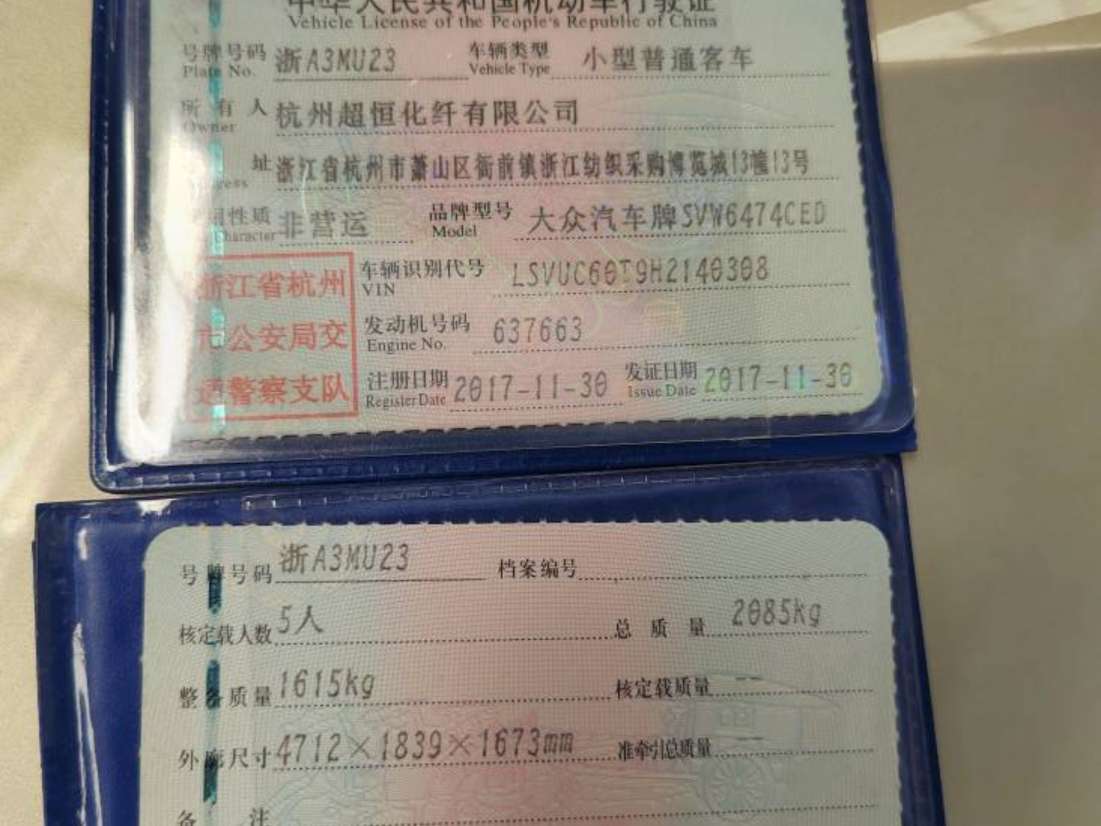 中华人民共和国机动车行驶证
Vehicle License of the People's Republic of China
号牌号码 浙A3MU23 车辆类型 小型普通客车
Plate No. Vehicle Type
所有人 杭州超恒化纤有限公司
Owner
址 浙江省杭州市萧山区衙前镇浙江纺织采购博览城13幢13号
性质 非营运 品牌型号 大众汽车牌SVW6474CED
Character Model
车辆识别代号 LSVUC60T9H2140308
VIN
浙江省杭州
市公安局交
通警察支队
发动机号码 637663
Engine No.
注册日期 2017-11-30 发证日期 2017-11-30
Register Date Issue Date
号牌号码 浙A3MU23 档案编号
核定载人数 5人 总质量 2085kg
整备质量 1615kg 核定载质量 --
外廓尺寸 4712×1839×1673mm 准牵引总质量 --
备注